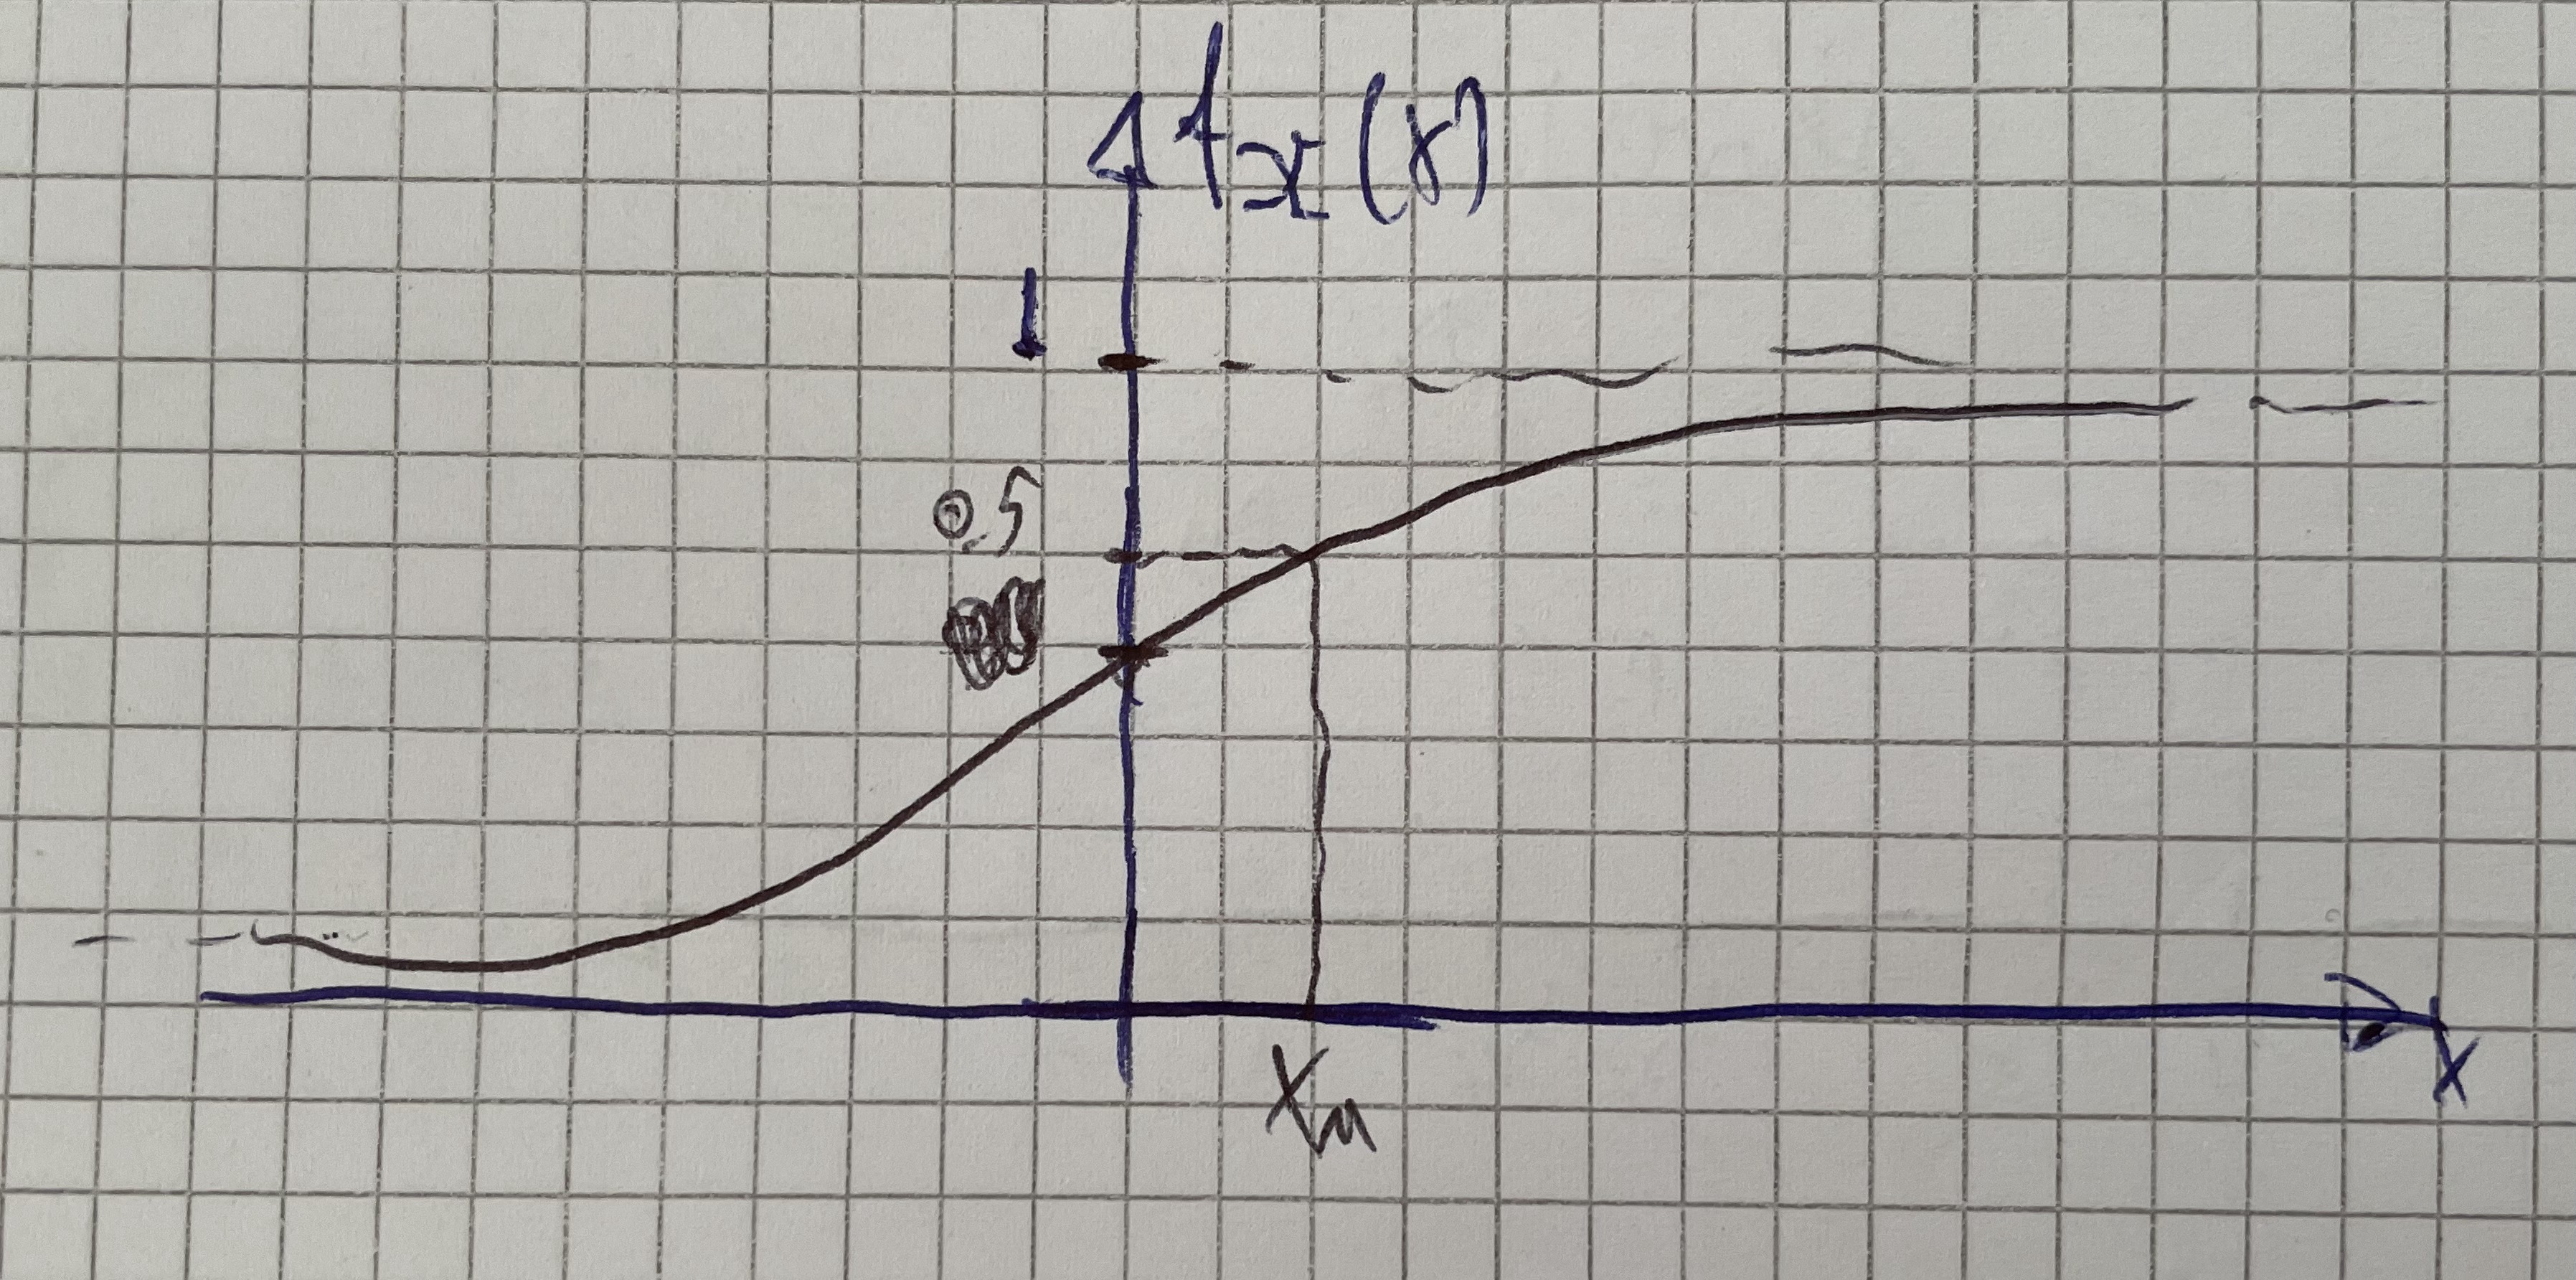 f_x(x)
1
0.5
x_m
x